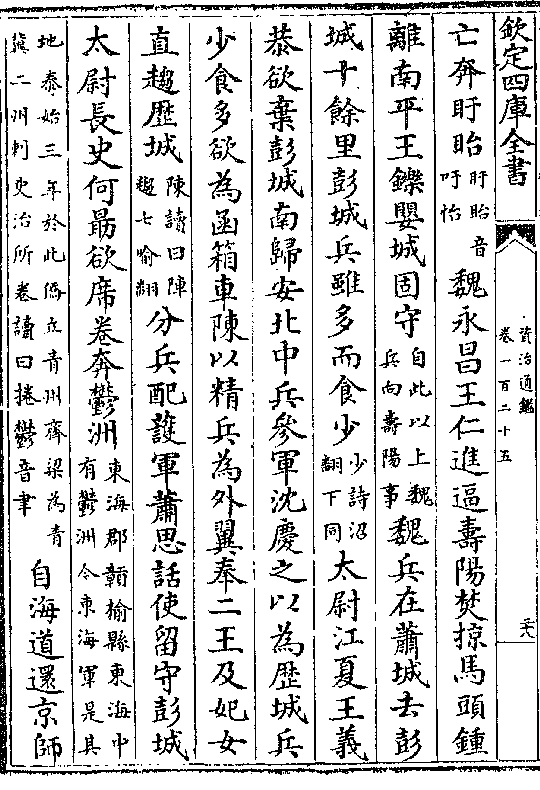 欽定四庫全書
資治通鑑
卷一百二十五
三六
亡奔盱眙盱眙音吁怡魏永昌王仁進逼壽陽焚掠馬頭鍾
離南平王鑠嬰城固守自此以上魏兵向壽陽事魏兵在蕭城去彭
城十餘里彭城兵雖多而食少少詩沼翻下同太尉江夏王義
恭欲棄彭城南歸安北中兵參軍沈慶之以為歴城兵
少食多欲為函箱車陳以精兵為外翼奉二王及妃女
直趨歴城陳讀曰陣趨七喻翻分兵配護軍蕭思話使留守彭城
太尉長史何勗欲席卷奔鬱洲東海郡贛榆縣東海中有鬱洲今東海軍是其
地泰始三年於此僑立青州齊梁為青冀二州刺史治所卷讀曰捲鬱音聿自海道還京師